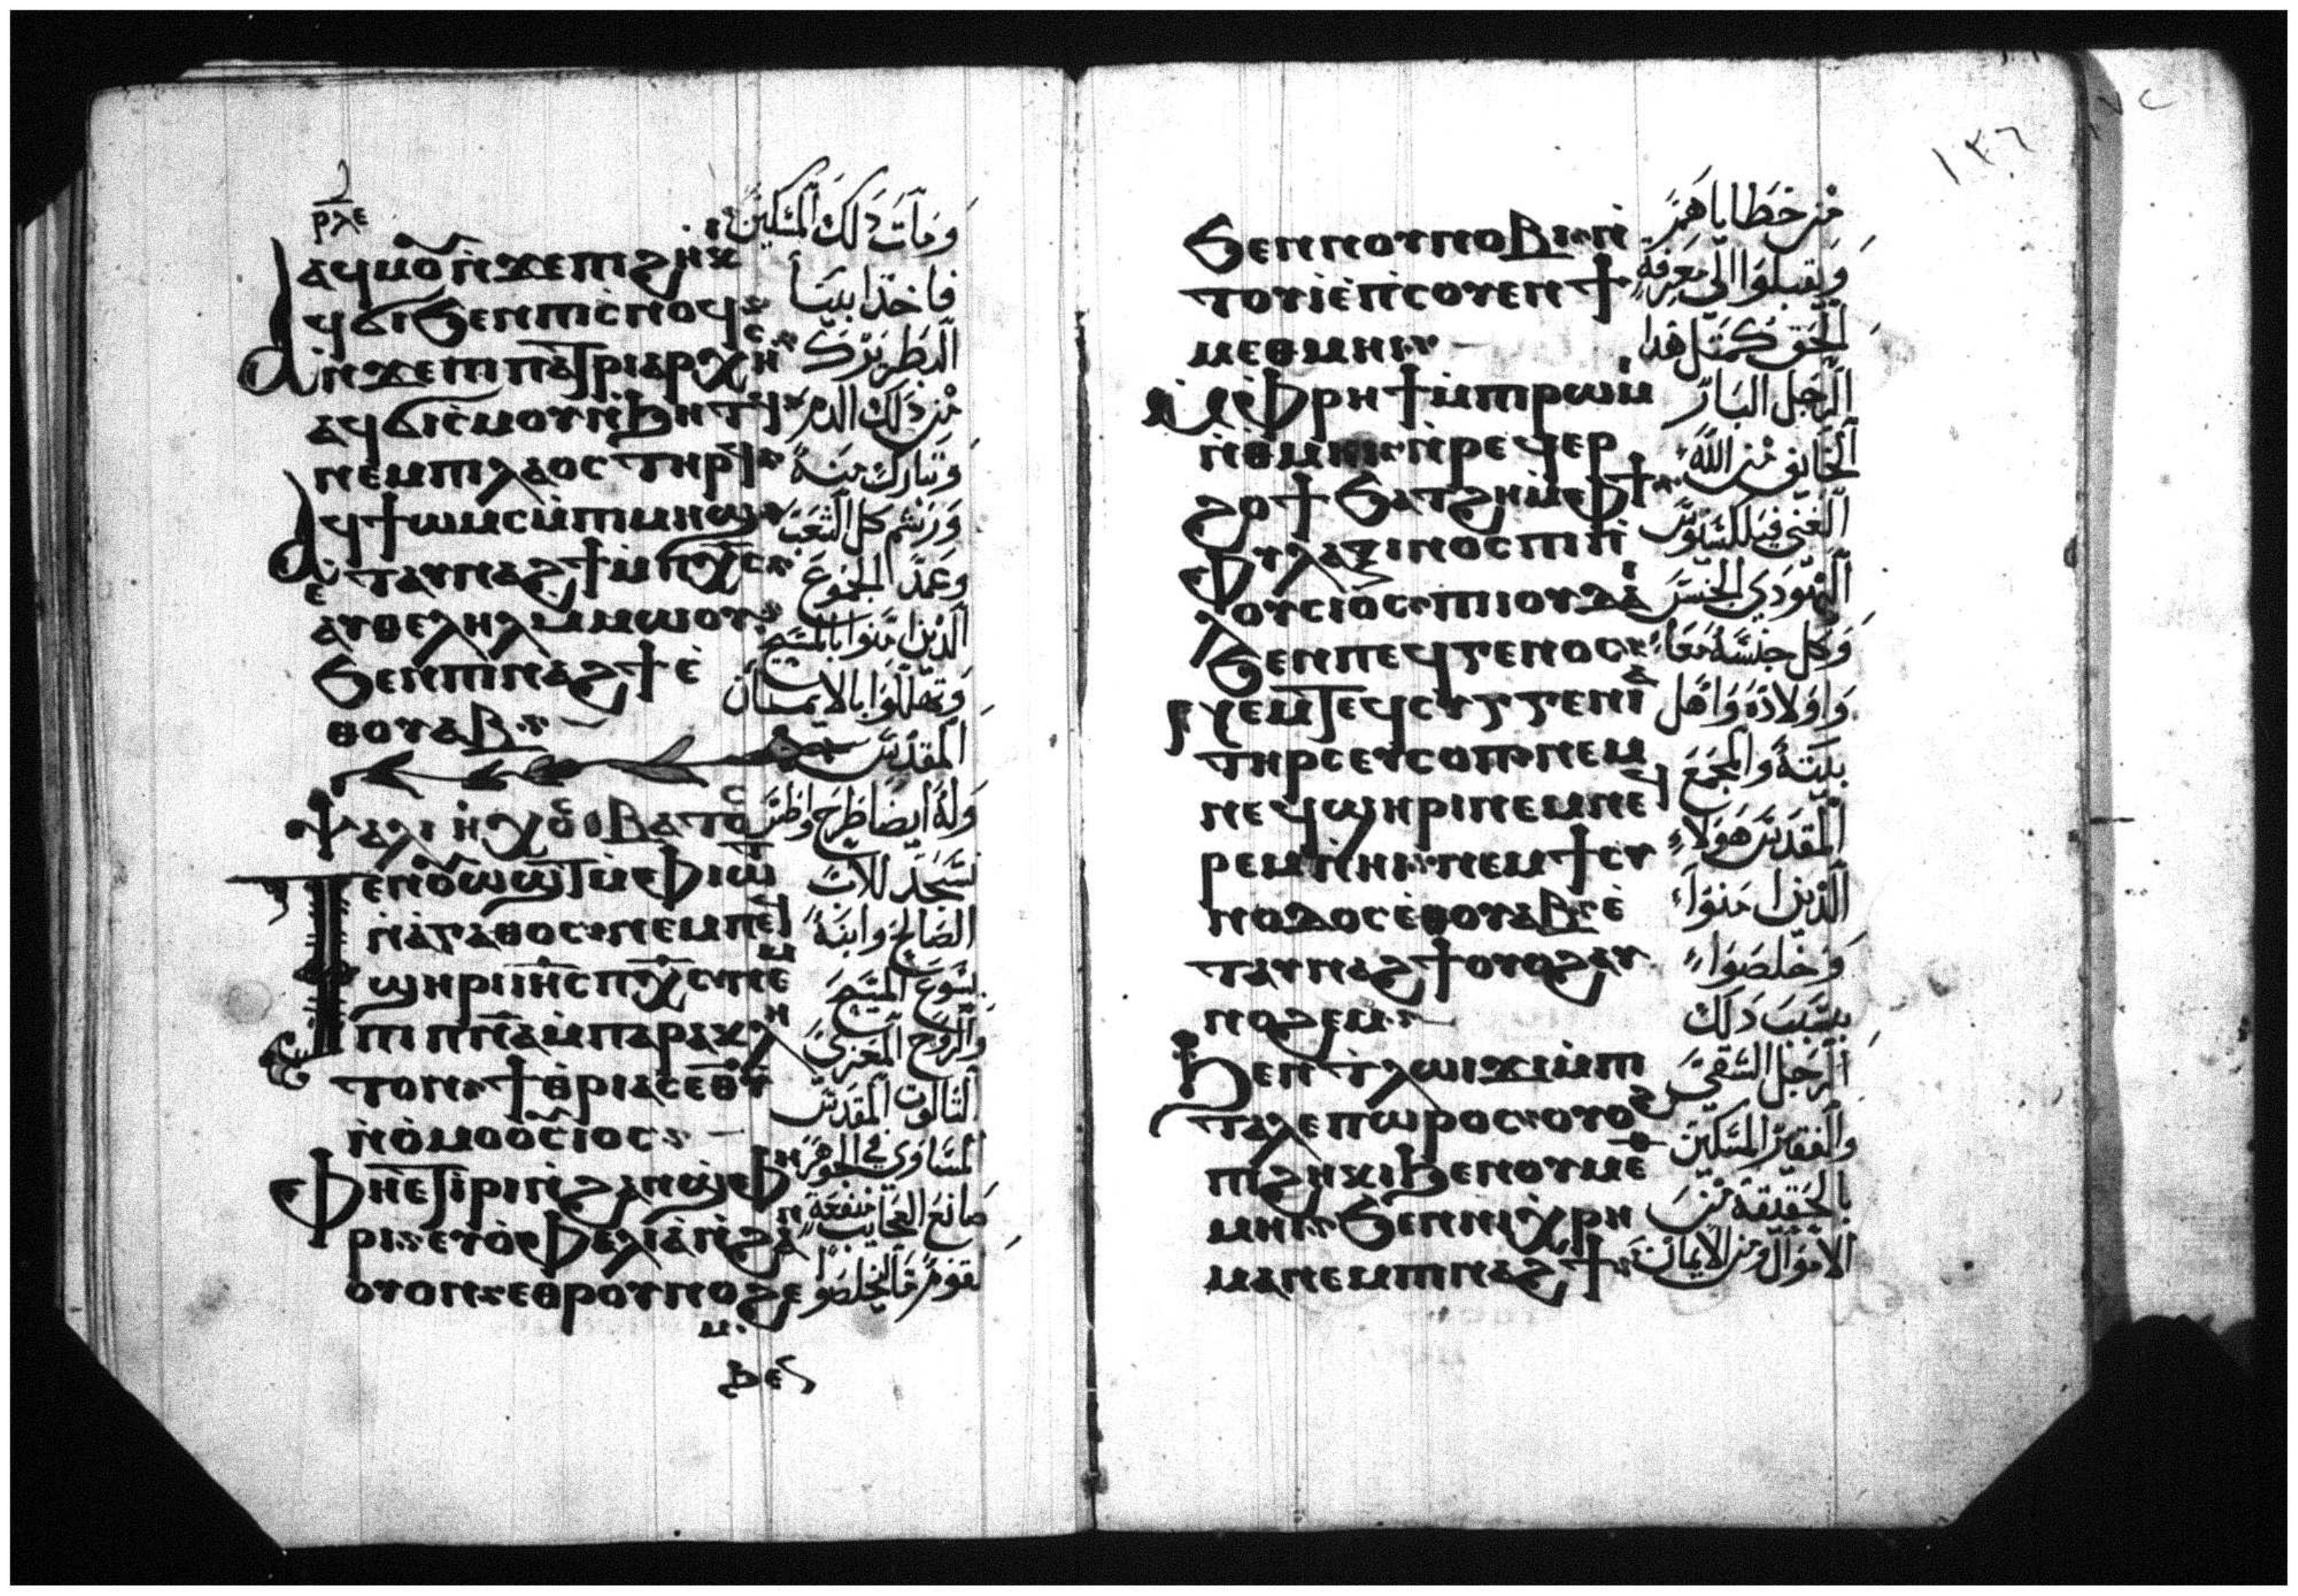 ⲣⲗⲉ
ⲁϥⲙⲟⲩ ⲛ̀ϫⲉ ⲡⲓϩⲏⲕⲓ
ⲁϥϭⲓ ϧⲉⲛ ⲡⲓⲥⲛⲟϥ
ⲛ̀ϫⲉ ⲡⲓⲡⲁⲧⲣⲓⲁⲣⲭⲏⲥ
ⲁϥϭⲓⲥ̀ⲙⲟⲩ ⲛ̀ϧⲏⲧϥ
ⲛⲉⲙ ⲡⲓⲗⲁⲟⲥ ⲧⲏⲣϥ
ⲁϥϯⲱⲙⲥ ⲙ̀ⲡⲓⲙⲏϣ
ⲉⲧⲁⲩⲛⲁϩϯ ⲙ̀ⲡⲭ̅ⲥ̅
ⲁⲩⲑⲉⲗⲏⲗ ⲙ̀ⲙⲱⲟⲩ
ϧⲉⲛ ⲡⲓⲛⲁϩϯ ⲉ̀
ⲑⲟⲩⲁⲃ
ومات دلك المسكين
فاخذ ابينا
البطريرك
من دلك الدم
وتبارك منه
ورشم كل الشعب
وعمد الجموع
الدين امنوا بالمسيح
وتهللوا بالايمان
المقدس
ⲯⲁⲗⲓ ⲏⲭⲟⲥ ⲃⲁⲧⲟⲥ
ⲧⲉⲛⲟⲩⲱϣⲧ ⲙ̀ⲫⲓⲱⲧ
ⲛ̀ⲁⲅⲁⲑⲟⲥ ⲛⲉⲙ ⲡⲉϥ
ϣⲏⲣⲓ ⲓⲏ̅ⲥ̅ ⲡⲭ̅ⲥ̅ ⲛⲉⲙ
ⲡⲓⲡⲛ̅ⲁ̅ ⲙ̀ⲡⲁⲣⲁⲕⲗⲏ
ⲧⲟⲛ ϯⲑⲣⲓⲁⲥ ⲉⲑⲩ
ⲛ̀ⲟ̀ⲙⲟⲟⲩⲥⲓⲟⲥ
ⲫⲏⲉⲧⲓⲣⲓ ⲛ̀ϩⲁⲛϣⲫⲏ
ⲣⲓ ⲉⲩⲟ̀ⲫⲉⲗⲓⲁ ⲛ̀ϩⲁⲛ
ⲟⲩⲟⲛ ⲉⲑⲣⲟⲩⲛⲟϩⲉ
ⲙ
وله ايضا طرح واطس
نسجد للاب
الصالح وابنه
يسوع المسيح
والروح المعزي
التالوت المقدس
المساوي في الجوهر
صانع العجايب منفعة
لقوم
ϧⲉⲛ
١٣٦
ϧⲉⲛ ⲛⲟⲩⲛⲟⲃⲓ ⲛ̀
ⲧⲟⲩⲓ̀ ⲉ̀ⲡⲥⲟⲩⲉⲛ ϯ
ⲙⲉⲑⲙⲏⲓ
ⲙ̀ⲫⲣⲏϯ ⲙ̀ⲡⲓⲣⲱⲙⲓ
ⲛ̀ⲑⲙⲏⲓ ⲛ̀ⲣⲉϥⲉⲣ
ϩⲟϯ ϧⲁⲧϩⲏ ⲙ̀ⲫϯ
ⲫⲩⲗⲁⲝⲓⲛⲟⲥ ⲡⲓⲡⲗ
ⲟⲩⲥⲓⲟⲥ ⲡⲓⲓⲟⲩⲇⲁⲓ
ϧⲉⲛ ⲡⲉϥⲅⲉⲛⲟⲥ
ⲛⲉⲙ ⲧⲉϥⲥⲩⲅⲅⲉⲛⲓⲁ
ⲧⲏⲣⲥ ⲉⲩⲥⲟⲡ ⲛⲉⲙ
ⲛⲉϥϣⲏⲣⲓ ⲛⲉⲙ ⲛⲉϥ
ⲣⲉⲙⲛ̀ⲏⲓ ⲛⲉⲙ ϯⲥⲩ
ⲛⲟⲇⲟⲥ ⲉ̀ⲑⲟⲩⲁⲃ ⲉ̀
ⲧⲁⲩⲛⲁϩϯ ⲟⲩⲟϩ ⲁⲩ
ⲛⲟϩⲉⲙ
ϧⲉⲛ ⲧⲗⲱⲓϫⲓ ⲙ̀ⲡⲓ
ⲧⲁⲗⲉⲡⲱⲣⲟⲥ ⲟⲩⲟϩ
ⲡⲓϩⲏⲕⲓ ϧⲉⲛ ⲟⲩⲙⲉⲑ
ⲙⲏⲓ ϧⲉⲛ ⲛⲓⲭⲣⲏ
ⲙⲁ ⲛⲉⲙ ⲡⲓⲛⲁϩϯ
من خطاياهم
ويقبلوا الى معرفة
الحق كمتل هدا
الرجل البار
الخايف من الله
الغني فيلكسينوس
اليهودي الجنس
وكل جنسه معا
واولاده واهل
بيته والمجمع
المقدس هولاء
الذين امنوا
وخلصوا
بسبب دلك
الرجل الشقي
والفقير المسكين
بالحقيقة من
الاموال ومن الايمان